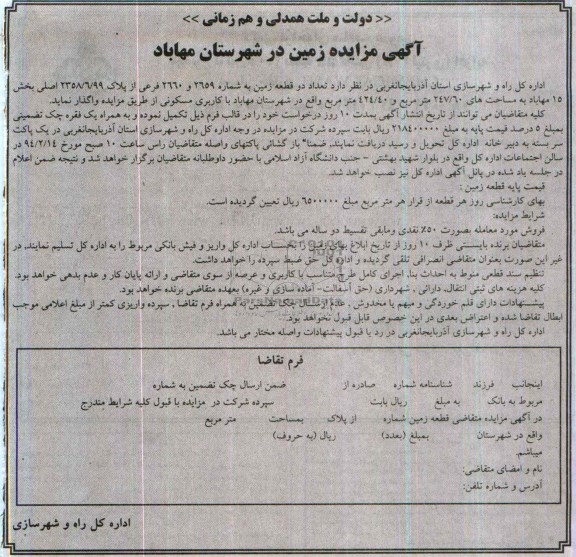 << دولت و ملت همدلی و هم زمانی >>
آگهی مزایده زمین در شهرستان مهاباد
اداره کل راه و شهرسازی استان آذربایجانغربی در نظر دارد تعداد دو قطعه زمین به شماره ۲۶۵۹ و ۲۶۶۰ فرعی از پلاک ۲۳۵۸/۶/۹۹ اصلی بخش
۱۵ مهاباد به مساحت های ۲۴۷/۶۰ متر مربع و ۴۲۴/۴۰ متر مربع واقع در شهرستان مهاباد با کاربری مسکونی از طریق مزایده واگذار نماید.
کلیه متقاضیان می توانند از تاریخ انتشار آگهی بمدت ۱۰ روز درخواست خود را در قالب فرم ذیل تکمیل نموده و به همراه یک فقره چک تضمینی
بمبلغ ۵ درصد قیمت پایه به مبلغ ۲۱۸۴۰۰۰۰۰ ریال بابت سپرده شرکت در مزایده در وجه اداره کل راه و شهرسازی استان آذربایجانغربی در یک پاکت
سر بسته به دبیر خانه اداره کل تحویل و رسید دریافت نمایند. ضمنا" باز گشائی پاکتهای واصله متقاضیان راس ساعت ۱۰ صبح مورخ ۹۴/۲/۱۴ در
سالن اجتماعات اداره کل واقع در بلوار شهید بهشتی - جنب دانشگاه آزاد اسلامی با حضور داوطلبانه متقاضیان برگزار خواهد شد و نتیجه ضمن اعلام
در جلسه یاد شده در پانل آگهی اداره کل نیز نصب خواهد شد.
قیمت پایه قطعه زمین :
بهای کارشناسی روز هر قطعه از قرار هر متر مربع مبلغ ۶۵۰۰۰۰۰ ریال تعیین گردیده است.
شرایط مزایده:
فروش مورد معامله بصورت ۵۰٪ نقدی ومابقی تقسیط دو ساله می باشد.
متقاضیان برنده بایستی ظرف ۱۰ روز از تاریخ ابلاغ بهای را بحساب اداره کل واریز و فیش بانکی مربوط را به اداره کل تسلیم نمایند، در
غیر این صورت بعنوان متقاضی انصرافی تلقی گردیده و اداره کل حق ضبط سپرده را خواهد داشت.
تنظیم سند قطعی منوط به احداث بنا، اجرای کامل طرح متناسب با کاربری و عرصه از سوی متقاضی و ارائه پایان کار و عدم بدهی خواهد بود.
کلیه هزینه های ثبتی انتقال، دارائی ، شهرداری (حق آسفالت- آماده سازی و غیره) بعهده متقاضی برنده خواهد بود.
پیشنهادات دارای قلم خوردگی و مبهم یا مخدوش ، عدم ارسال چک تضمین به همراه فرم تقاضا ، سپرده واریزی کمتر از مبلغ اعلامی موجب
ابطال تقاضا شده و اعتراض بعدی در این خصوص قابل قبول نخواهد بود.
اداره کل راه و شهرسازی آذربایجانغربی در رد یا قبول پیشنهادات واصله مختار می باشد.
فرم تقاضا
اینجانب فرزند شناسنامه شماره صادره از ضمن ارسال چک تضمین به شماره
مربوط به بانک به مبلغ ریال بابت سپرده شرکت در مزایده با قبول کلیه شرایط مندرج
در آگهی مزایده متقاضی قطعه زمین شماره از پلاک بمساحت متر مربع
واقع در شهرستان بمبلغ (بعدد) ریال (به حروف)
میباشم.
نام و امضای متقاضی:
آدرس و شماره تلفن:
اداره کل راه و شهرسازی